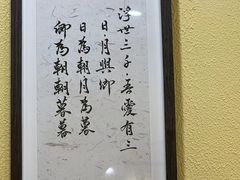 浮世三千吾愛有三
日月與卿
日為朝月為暮
卿為朝朝暮暮